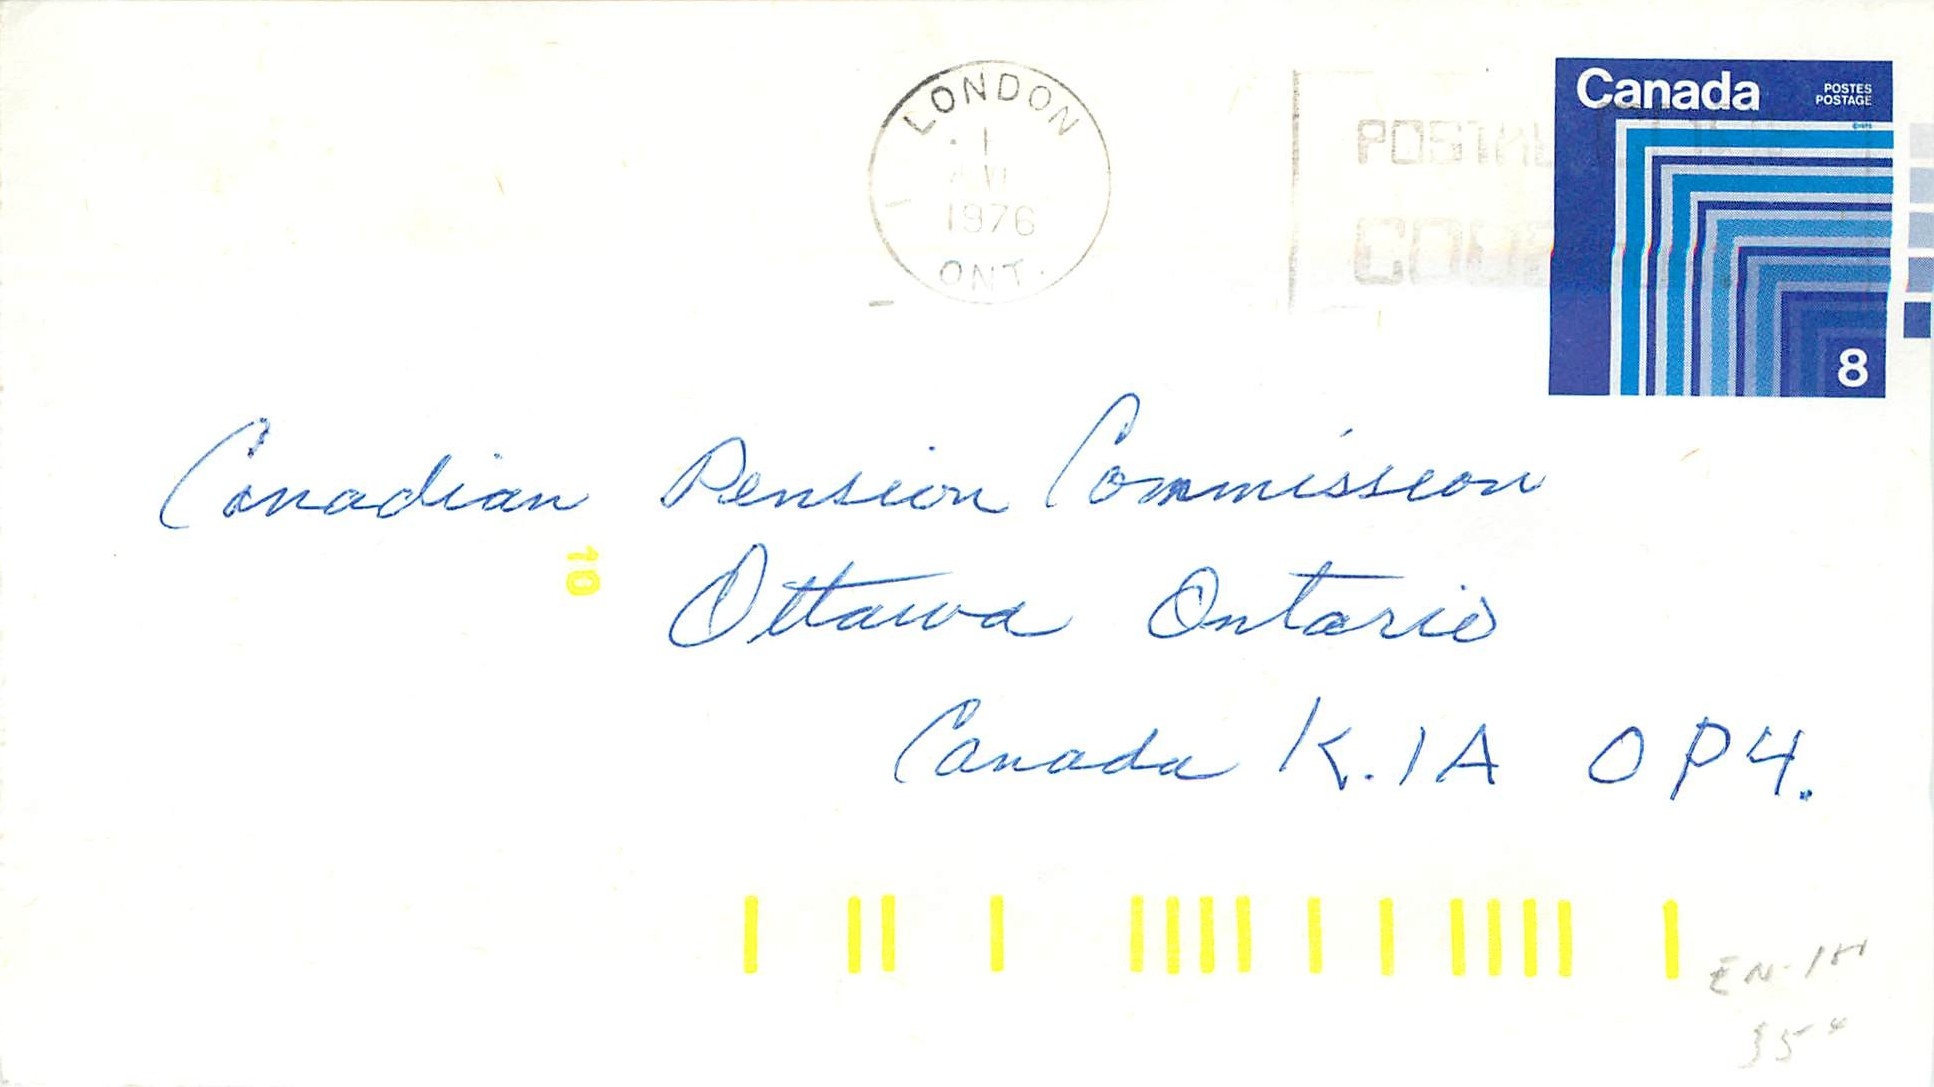 LONDON
1976
ONT.
POSTAL
Canada
POSTES
POSTAGE
8
Canadian Pension Commission
10
Ottawa Ontario
Canada K.1A 0P4.